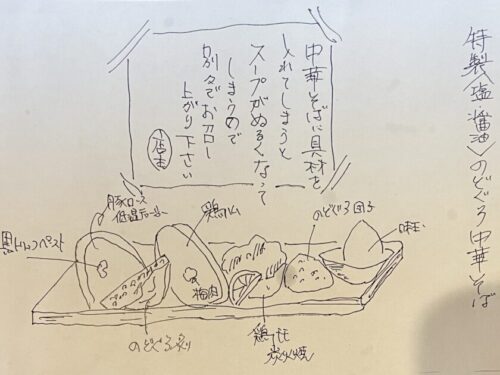 特製〈塩 醤油〉のどぐろ中華そば
中華そばに具材を
入れてしまうと
スープがぬるくなって
しまうので
別々でお召し
上がり下さい
店主
豚ロース
低温チャーシュー
鶏ハム
のどぐろ団子
味玉
黒トリュフペースト
梅肉
のどぐろ炙り
鶏モモ
炭火焼